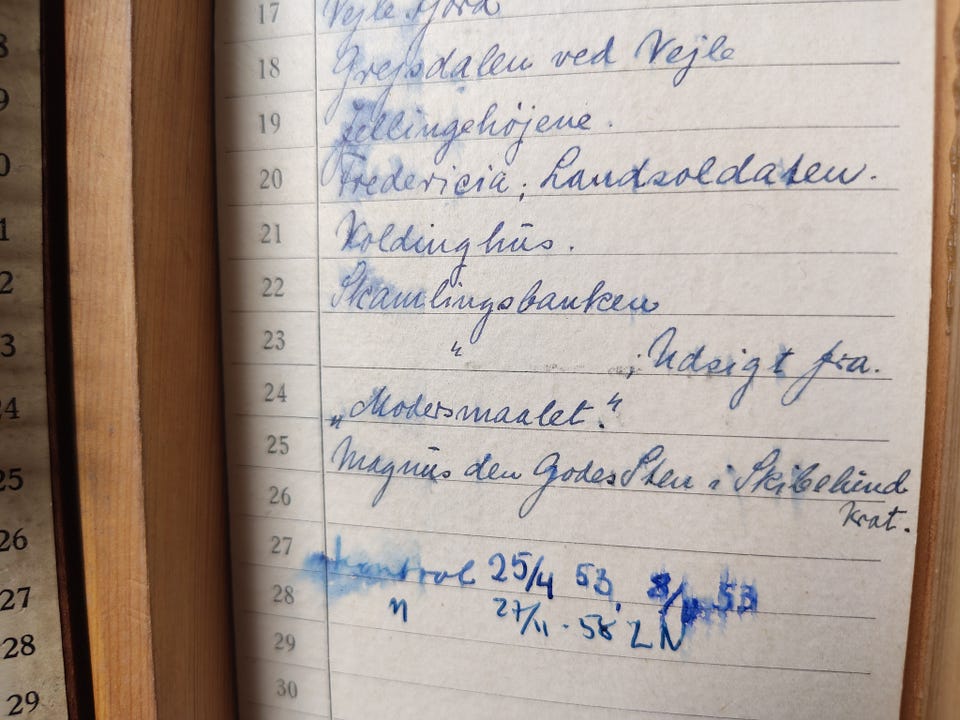 17 Vejle Fjord
18 Grejsdalen ved Vejle
19 Jellingehöjene.
20 Fredericia; Landsoldaten.
21 Koldinghūs.
22 Skamlingsbanken
23 " ; Udsigt fra.
24 „Modersmaalet."
25 Magnūs den Godes Sten i Skibelūnd
26 Krat.
27 Kontrol 25/4 53, 8/ 53
28 " 27/11 - 58 LN
29
30
8
9
0
1
2
3
24
25
26
27
28
29